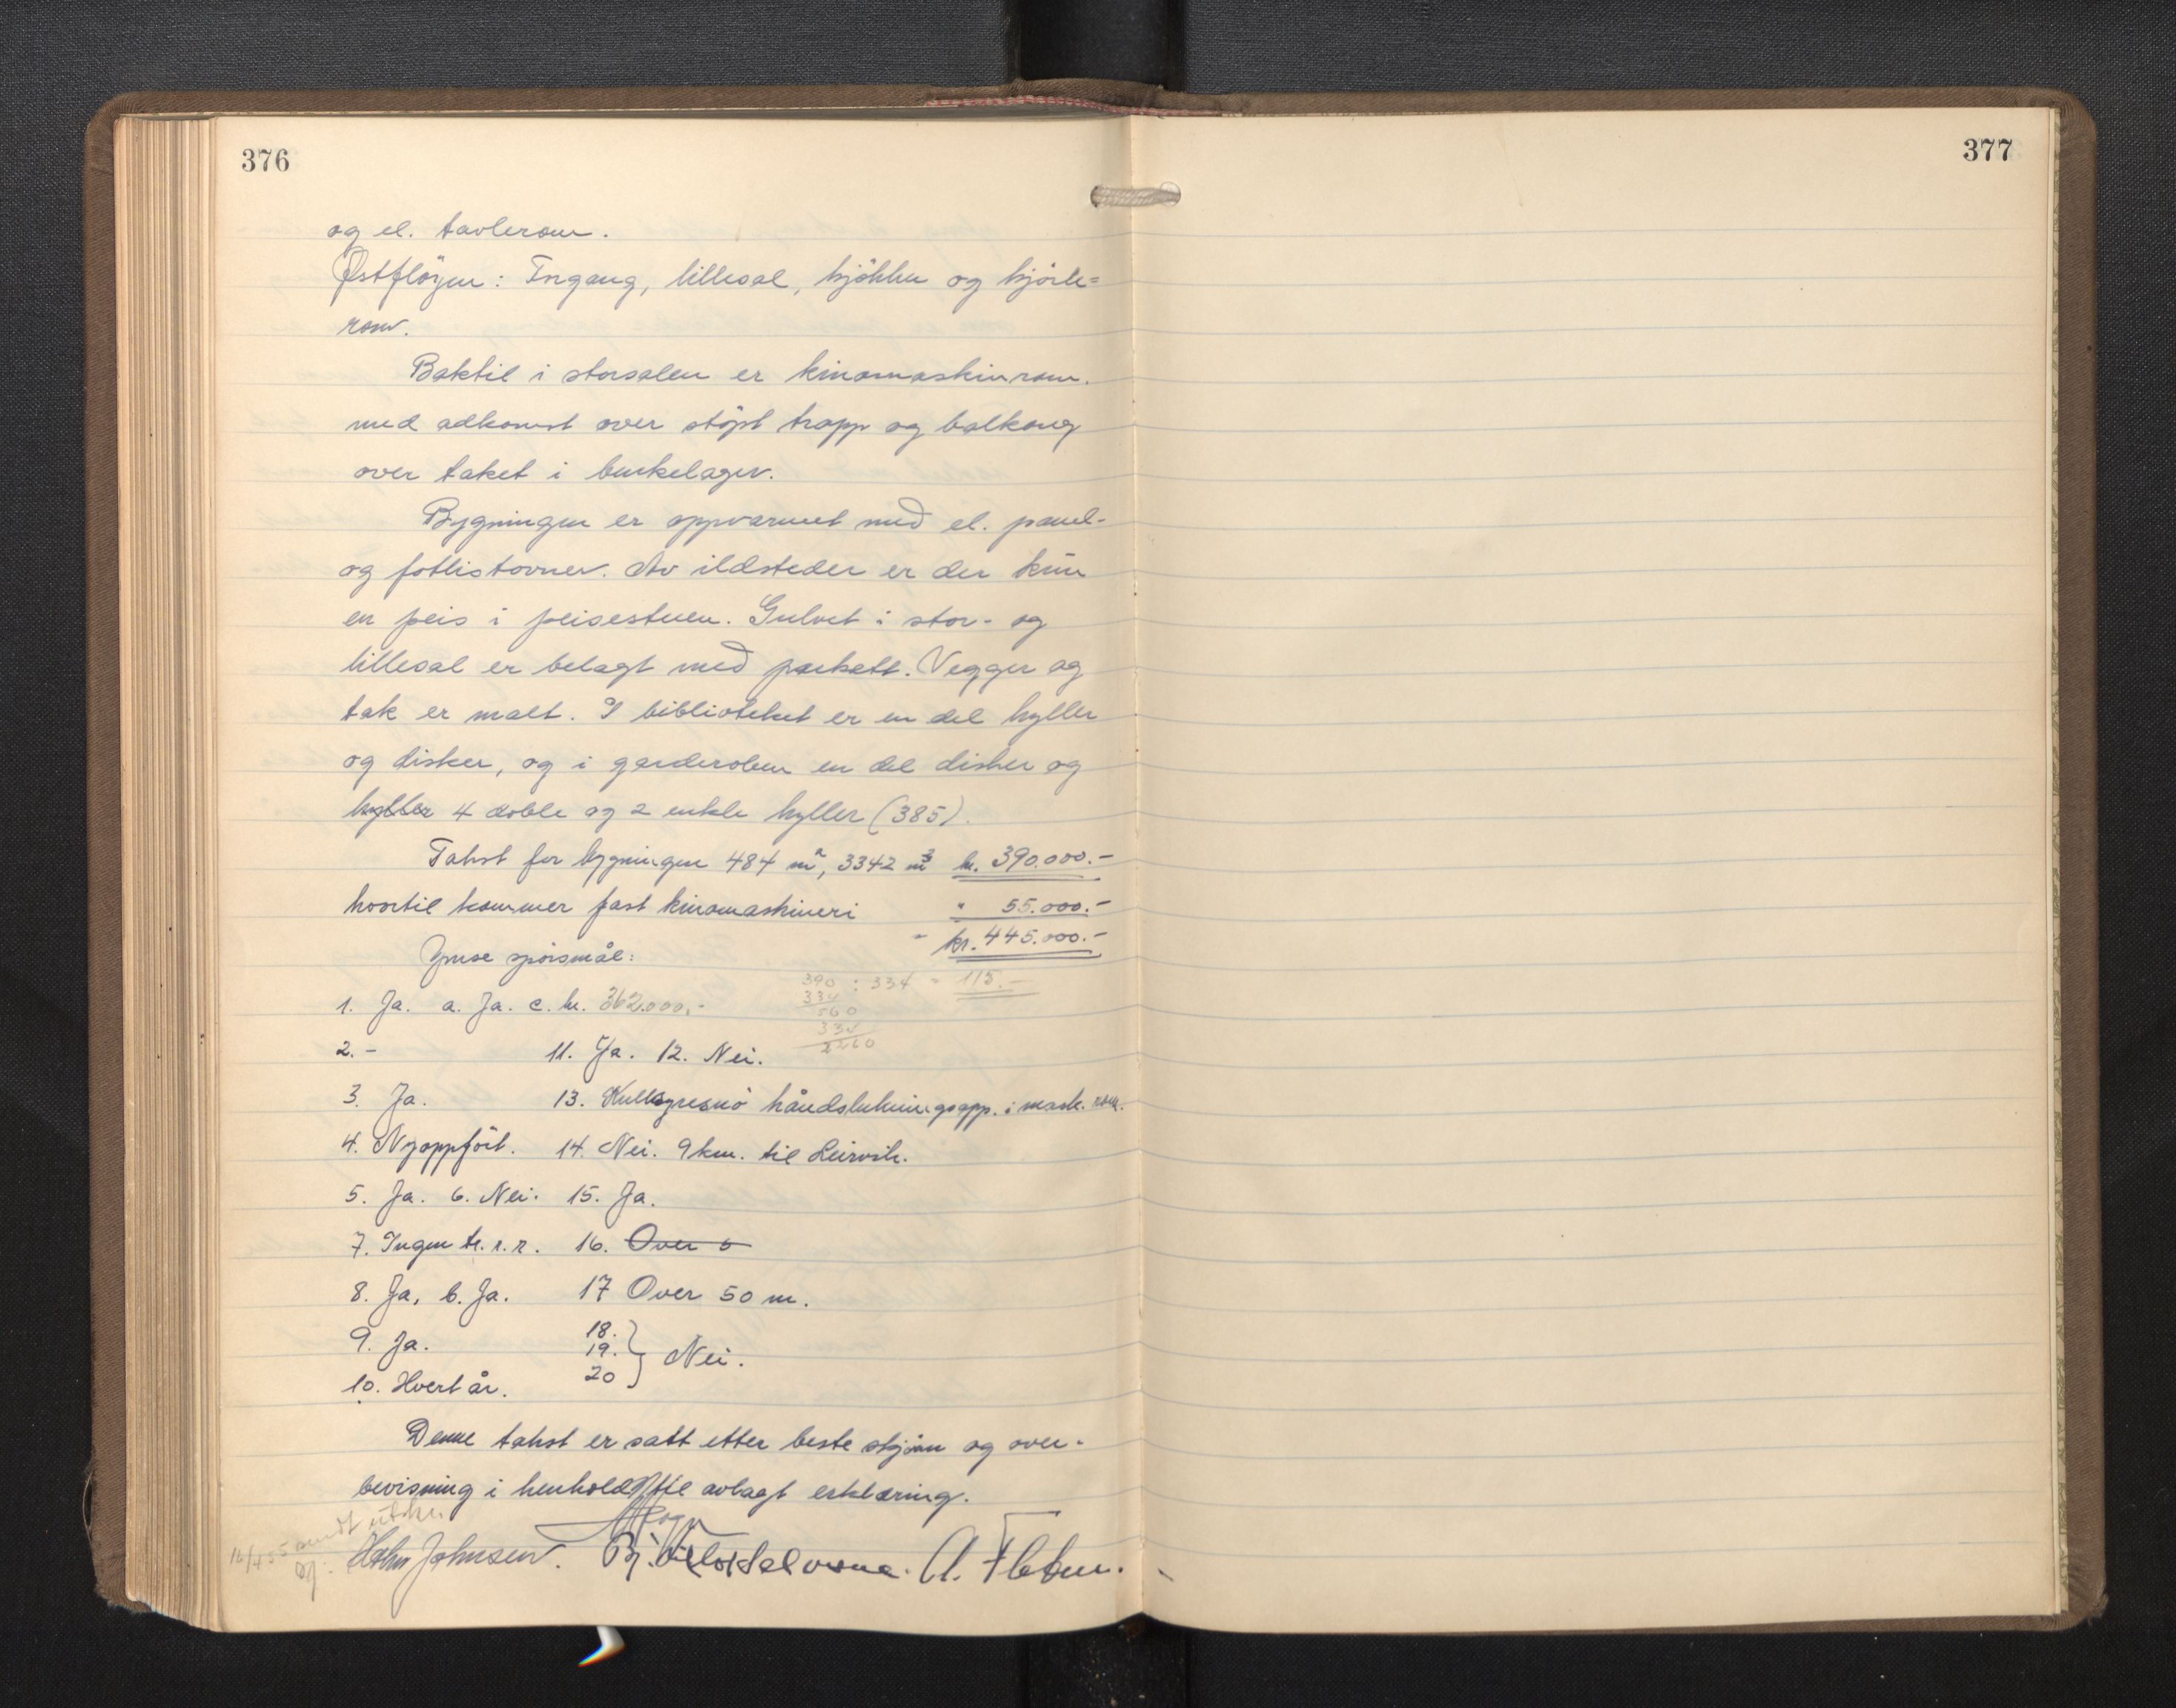 376
og el. tavlerom.
Østfløyen: Ingang, lillesal, kjøkken og kjøle=
rom.
Baktil i storsalen er kinomaskinrom.
med adkomst over støpt trapp og balkong
over taket i benkelager.
Bygningen er oppvarmet med el. panel-
og fotlistovner. Av ildsteder er der kun
en peis i peisestuen. Gulvet i stor- og
lillesal er belagt med parkett. Vegger og
tak er malt. I biblioteket er en del hyller
og disker, og i garderoben en del disker og
hyller 4 doble og 2 enkle hyller (385).
Takst for bygningen 484 m², 3342 m³ kr. 390.000.-
hvortil kommer fast kinomaskineri " 55.000.-
- kr. 445.000.-
Ymse spörsmål:
390 : 334 = 115.-
334
560
334
2260
1. Ja. a. Ja. c. kr. 362.000,-
2. - 11. Ja. 12. Nei.
3. Ja. 13. Kullsyresnö håndslukningsapp. i mask. rom.
4. Nyoppfört. 14. Nei. 9 km. til Leirvik.
5. Ja. 6. Nei. 15. Ja.
7. Ingen tr. r. r. 16. Over 5
8. Ja, b. Ja. 17 Over 50 m.
9. Ja. 18. 19. 20 } Nei.
10. Hvert år.
Denne takst er satt etter beste skjönn og over-
bevisning i henhold til avlagt erklæring.
sendt utskr.
Johnsen. A. Fletun.
377